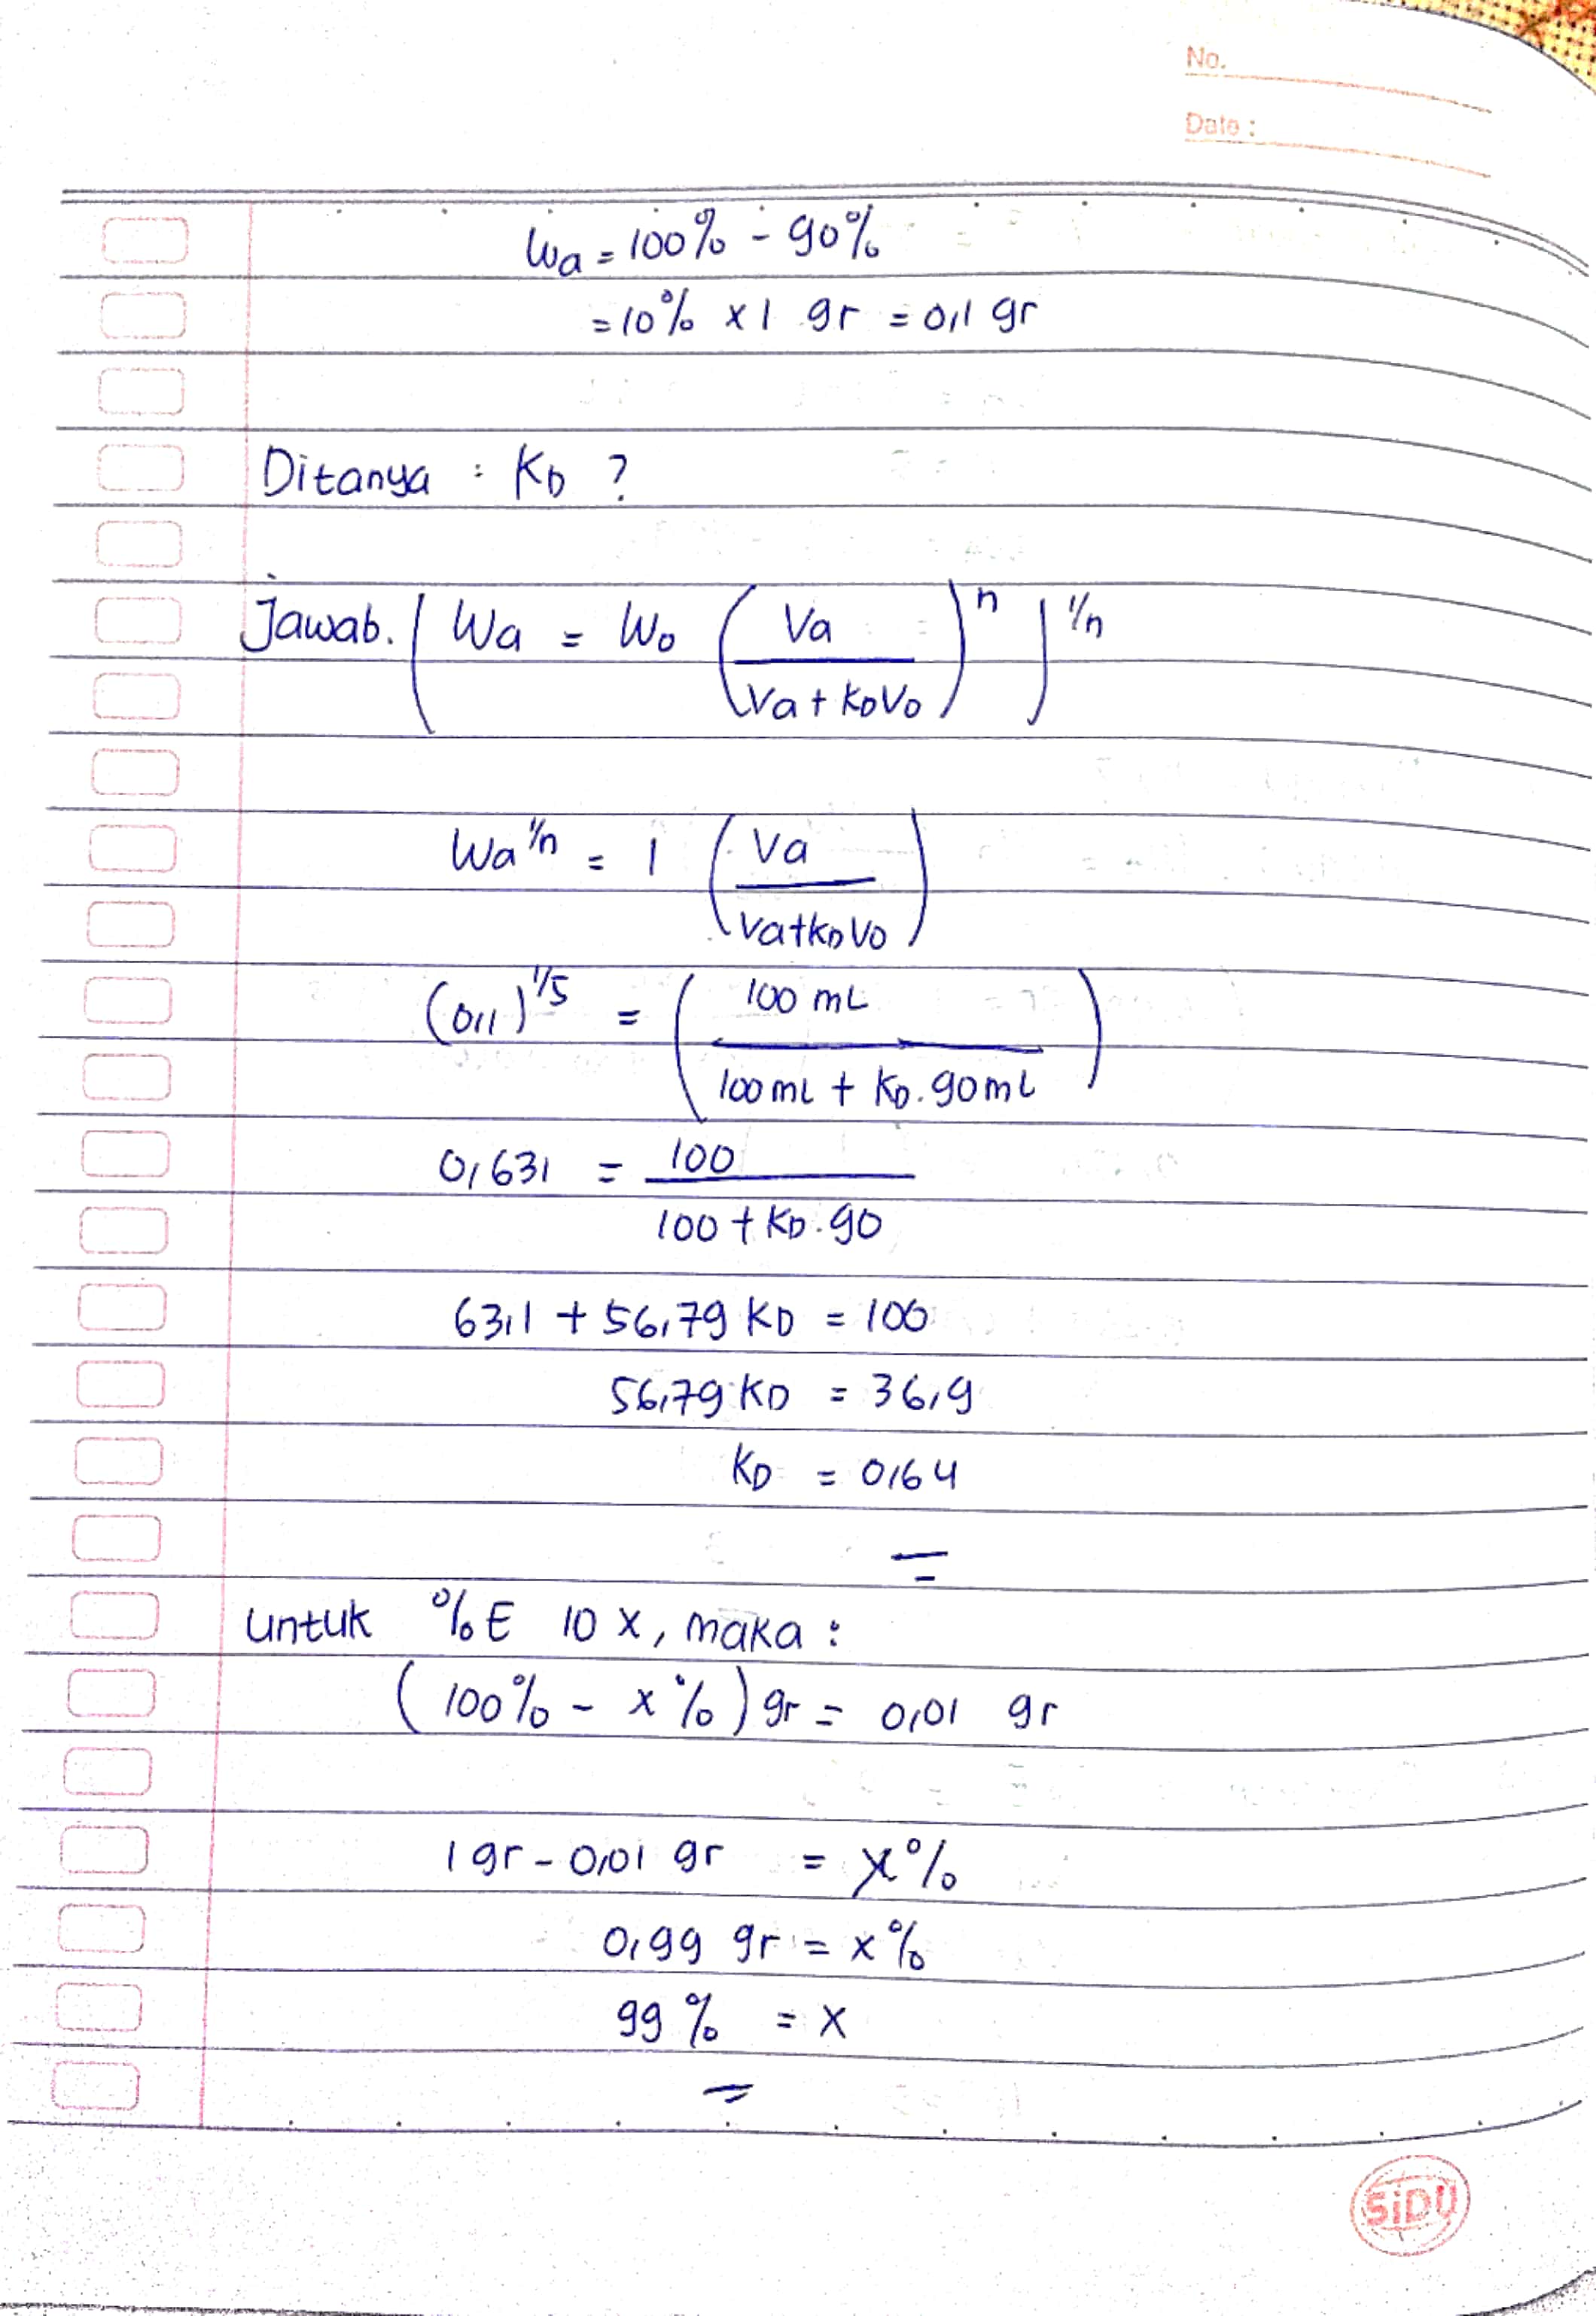 No.
Date :
Wa = 100% - 90%
= 10% x 1 gr = 0,1 gr
Ditanya : KD ?
Jawab. ( Wa = Wo ( Va / Va + KDVo )^n )^1/n
Wa^1/n = 1 ( Va / Va+KDVo )
(0,1)^1/5 = ( 100 mL / 100mL + KD. 90mL )
0,631 = 100 / 100 + KD. 90
63,1 + 56,79 KD = 100
56,79 KD = 36,9
KD = 0,64
untuk %E 10 x, maka :
( 100% - x % ) gr = 0,01 gr
1 gr - 0,01 gr = x%
0,99 gr = x%
99 % = x
SiDU